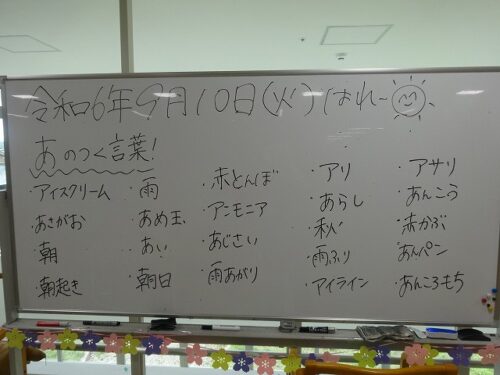 令和6年9月10日(火)はれー
あのつく言葉!
・アイスクリーム
・あさがお
・朝
・朝起き
・雨
・あめ玉
・あい
・朝日
・赤とんぼ
・アンモニア
・あじさい
・雨あがり
・アリ
・あらし
・秋
・雨ふり
・アイライン
・アサリ
・あんこう
・赤かぶ
・あんパン
・あんころもち